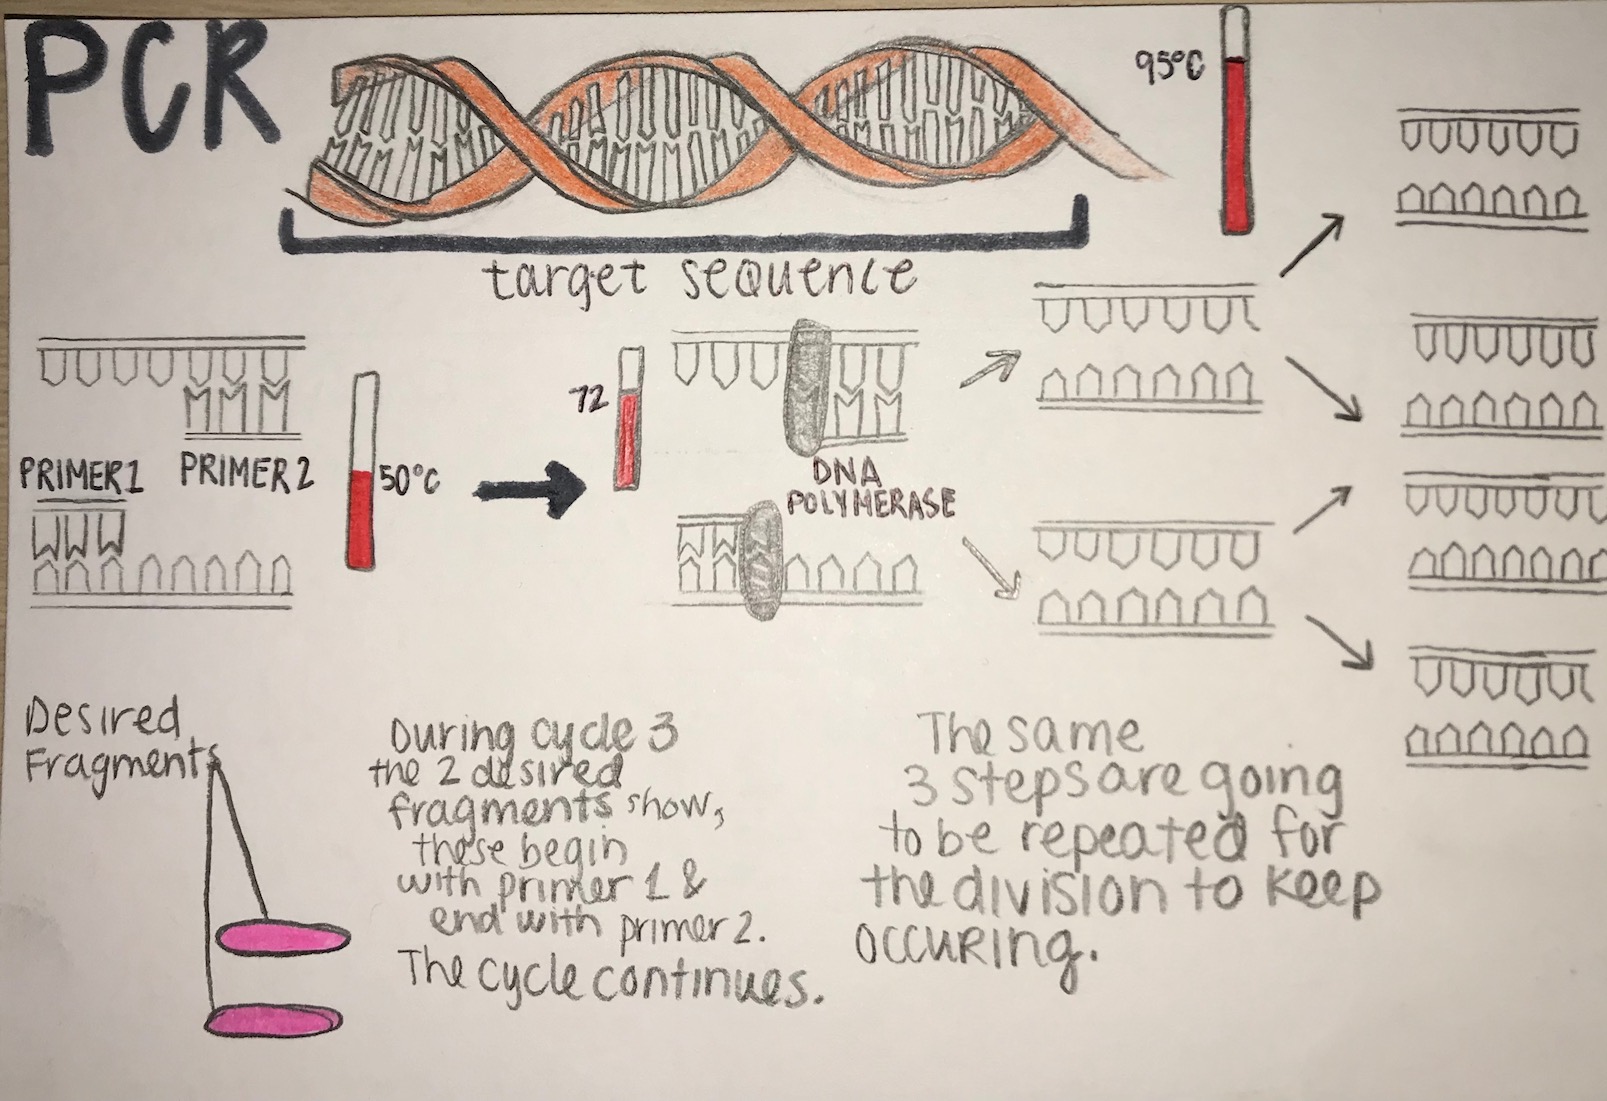 PCR
95°C
target sequence
PRIMER 1
PRIMER 2
50°C
72
DNA
POLYMERASE
Desired
Fragments
During cycle 3
the 2 desired
fragments show,
these begin
with primer 1 &
end with primer 2.
The cycle continues.
The same
3 steps are going
to be repeated for
the division to keep
occuring.